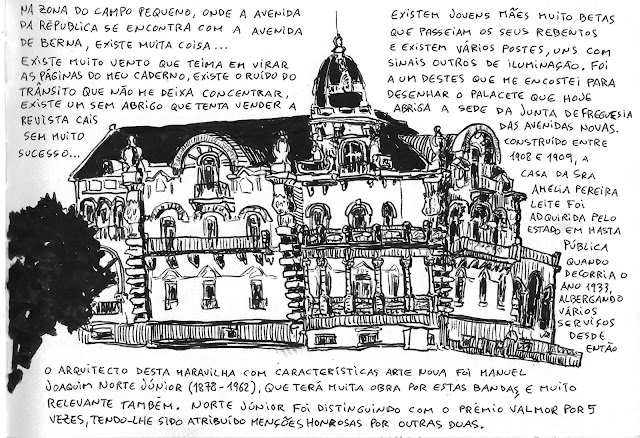 NA ZONA DO CAMPO PEQUENO, ONDE A AVENIDA
DA REPÚBLICA SE ENCONTRA COM A AVENIDA
DE BERNA, EXISTE MUITA COISA...
EXISTE MUITO VENTO QUE TEIMA EM VIRAR
AS PÁGINAS DO MEU CADERNO, EXISTE O RUÍDO DO
TRÂNSITO QUE NÃO ME DEIXA CONCENTRAR,
EXISTE UM SEM ABRIGO QUE TENTA VENDER A
REVISTA CAIS
SEM MUITO
SUCESSO...
EXISTEM JOVENS MÃES MUITO BETAS
QUE PASSEIAM OS SEUS REBENTOS
E EXISTEM VÁRIOS POSTES, UNS COM
SINAIS OUTROS DE ILUMINAÇÃO. FOI
A UM DESTES QUE ME ENCOSTEI PARA
DESENHAR O PALACETE QUE HOJE
ABRIGA A SEDE DA JUNTA DE FREGUESIA
DAS AVENIDAS NOVAS.
CONSTRUÍDO ENTRE
1908 E 1909, A
CASA DA SRA
AMÉLIA PEREIRA
LEITE FOI
ADQUIRIDA PELO
ESTADO EM HASTA
PÚBLICA
QUANDO
DECORRIA O
ANO 1933,
ALBERGANDO
VÁRIOS
SERVIÇOS
DESDE
ENTÃO
O ARQUITECTO DESTA MARAVILHA COM CARACTERÍSTICAS ARTE NOVA FOI MANUEL
JOAQUIM NORTE JÚNIOR (1878-1962), QUE TERÁ MUITA OBRA POR ESTAS BANDAS, E MUITO
RELEVANTE TAMBÉM. NORTE JÚNIOR FOI DISTINGUINDO COM O PRÉMIO VALMOR POR 5
VEZES, TENDO-LHE SIDO ATRIBUÍDO MENÇÕES HONROSAS POR OUTRAS DUAS.